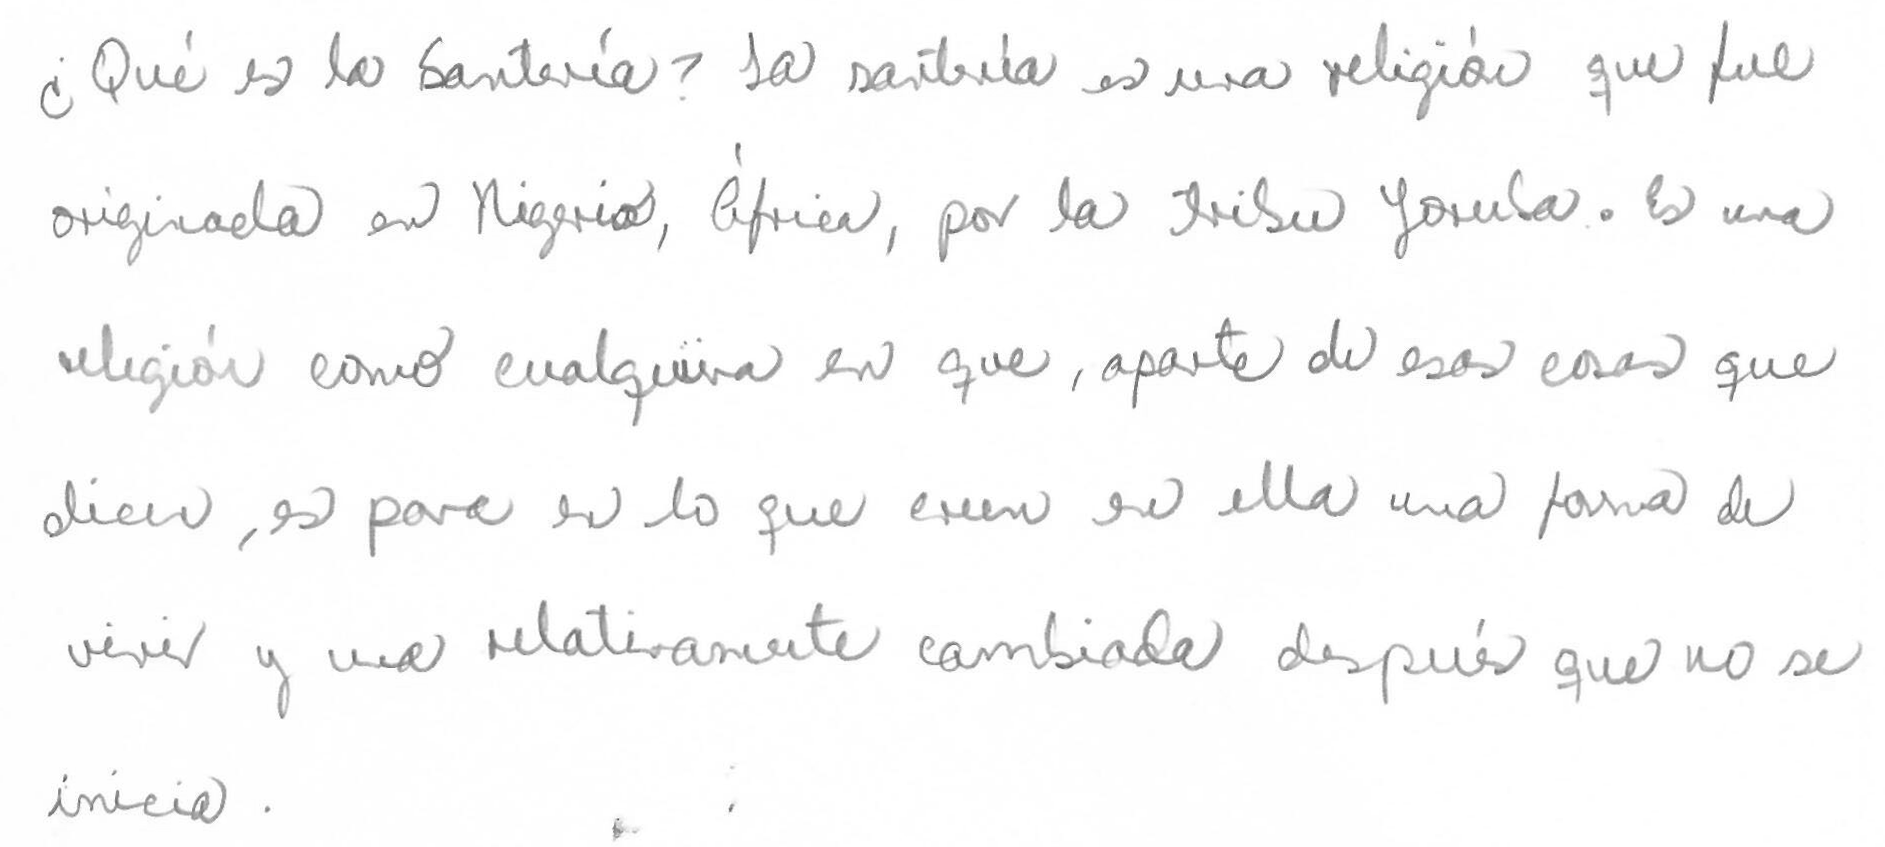 ¿Qué es la Santería? La santería es una religión que fue
originada en Nigeria, África, por la tribu Yoruba. Es una
religión como cualquiera en que, aparte de esas cosas que
dicen, es para en lo que creen en ella una forma de
vivir y una relativamente cambiada después que no se
inicia.